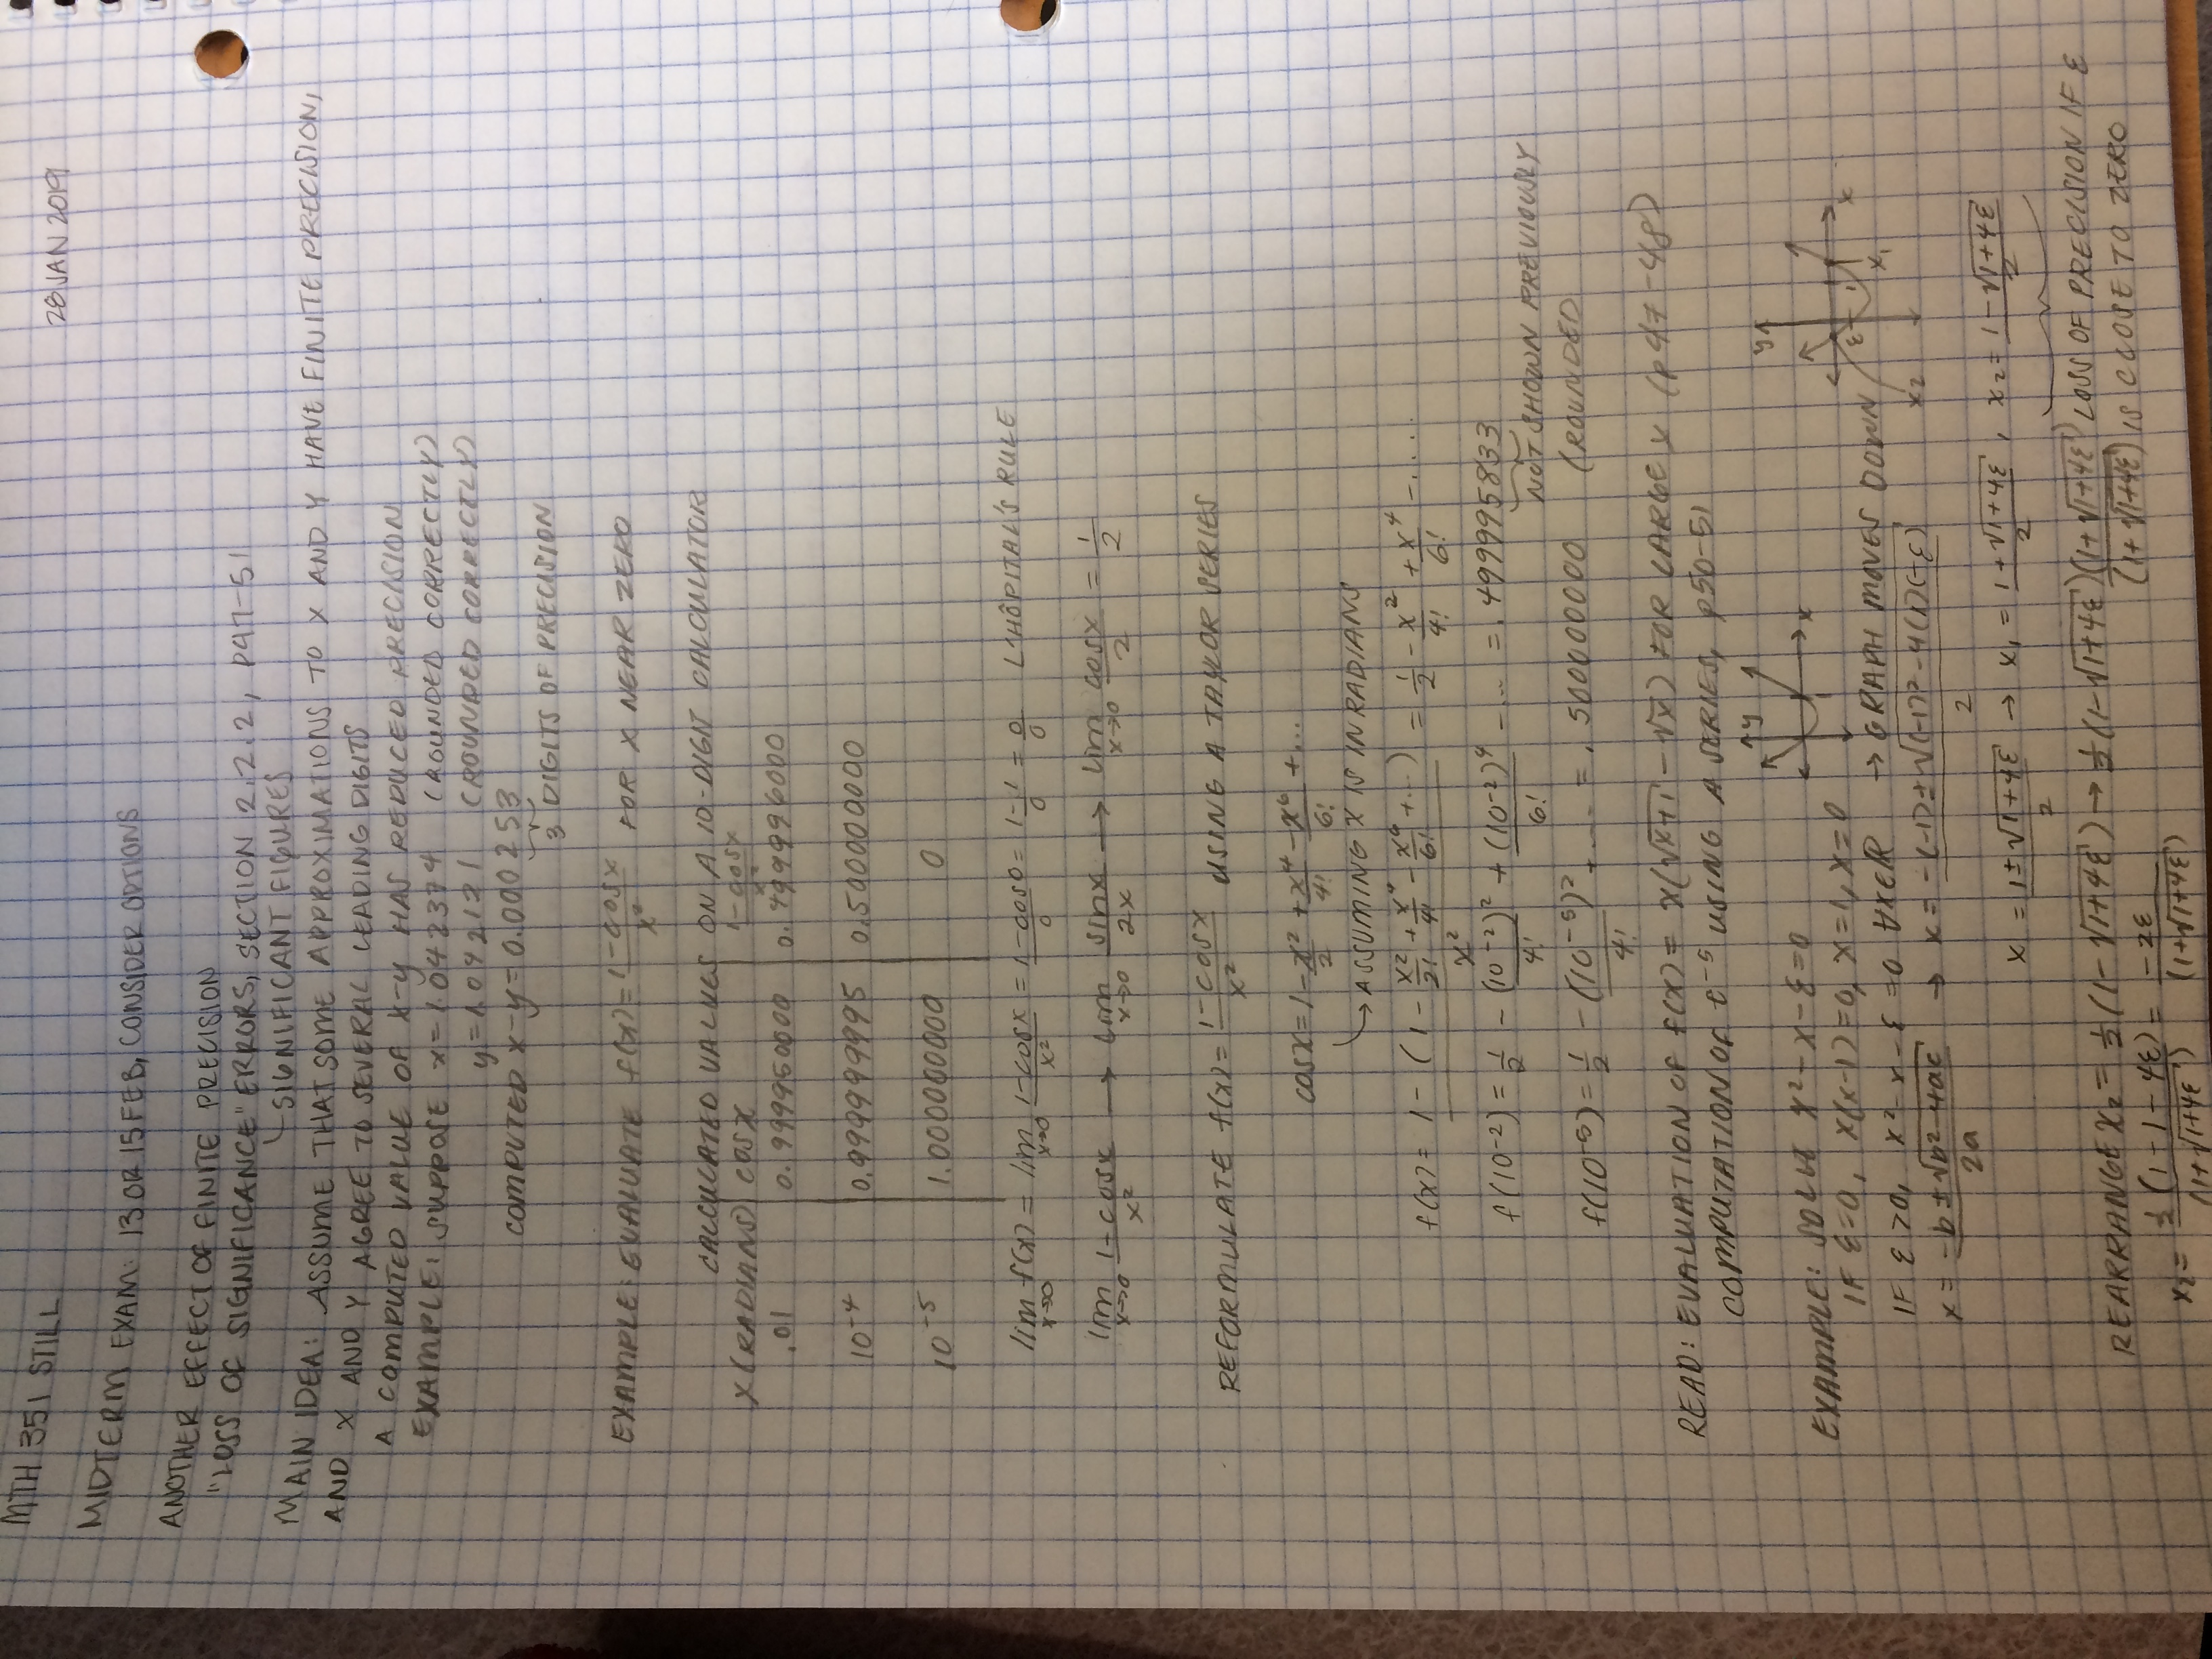 MTH 351 STILL
28 JAN 2019
MIDTERM EXAM: 13 OR 15 FEB, CONSIDER OPTIONS
ANOTHER EFFECT OF FINITE PRECISION
"LOSS OF SIGNIFICANCE" ERRORS, SECTION 2.2.2, P47-51
SIGNIFICANT FIGURES
MAIN IDEA: ASSUME THAT SOME APPROXIMATIONS TO X AND Y HAVE FINITE PRECISION,
AND X AND Y AGREE TO SEVERAL LEADING DIGITS
A COMPUTED VALUE OF X-Y HAS REDUCED PRECISION
EXAMPLE: SUPPOSE x=1.042374 (ROUNDED CORRECTLY)
y=1.042121 (ROUNDED CORRECTLY)
COMPUTED x-y=0.000253
3 DIGITS OF PRECISION
EXAMPLE: EVALUATE f(x)=(1-cosx)/x² FOR X NEAR ZERO
CALCULATED VALUES ON A 10-DIGIT CALCULATOR
X(RADIANS) cosx (1-cosx)/x²
.01 0.999950000 0.499996000
10⁻⁴ 0.999999995 0.500000000
10⁻⁵ 1.000000000 0
lim x→0 f(x) = lim x→0 (1-cosx)/x² = (1-cos0)/0 = (1-1)/0 = 0/0 L'HÔPITAL'S RULE
lim x→0 (1-cosx)/x² → lim x→0 sinx/2x → lim x→0 cosx/2 = 1/2
REFORMULATE f(x)=(1-cosx)/x² USING A TAYLOR SERIES
cosx=1-x²/2+x⁴/4!-x⁶/6!+...
→ASSUMING X IS IN RADIANS
f(x)= (1-(1-x²/2!+x⁴/4!-x⁶/6!+...))/x² = 1/2-x²/4!+x⁴/6!-....
f(10⁻²)=1/2-(10⁻²)²/4!+(10⁻²)⁴/6!-... =.499995833
NOT SHOWN PREVIOUSLY
f(10⁻⁵)=1/2-(10⁻⁵)²/4!+.... =.500000000 (ROUNDED
READ: EVALUATION OF f(x)= x(√x+1-√x) FOR LARGE X (p47-48)
COMPUTATION OF e⁻⁵ USING A SERIES, p50-51
y
x
y
x
-ε
1
x₁
x₂
EXAMPLE: SOLVE x²-x-ε=0
IF ε=0, x(x-1)=0, x=1, x=0
IF ε>0, x²-x-ε=0 ∀x∈ℝ → GRAPH MOVES DOWN
x=(-b±√b²-4ac)/2a → x=(-(-1)±√(-1)²-4(1)(-ε))/2
x=(1±√1+4ε)/2 → x₁=(1+√1+4ε)/2, x₂=(1-√1+4ε)/2
REARRANGE x₂=½(1-√1+4ε)→½(1-√1+4ε)(1+√1+4ε)/(1+√1+4ε) LOSS OF PRECISION IF ε
IS CLOSE TO ZERO
x₂=½(1-1-4ε)/(1+√1+4ε)=-2ε/(1+√1+4ε)